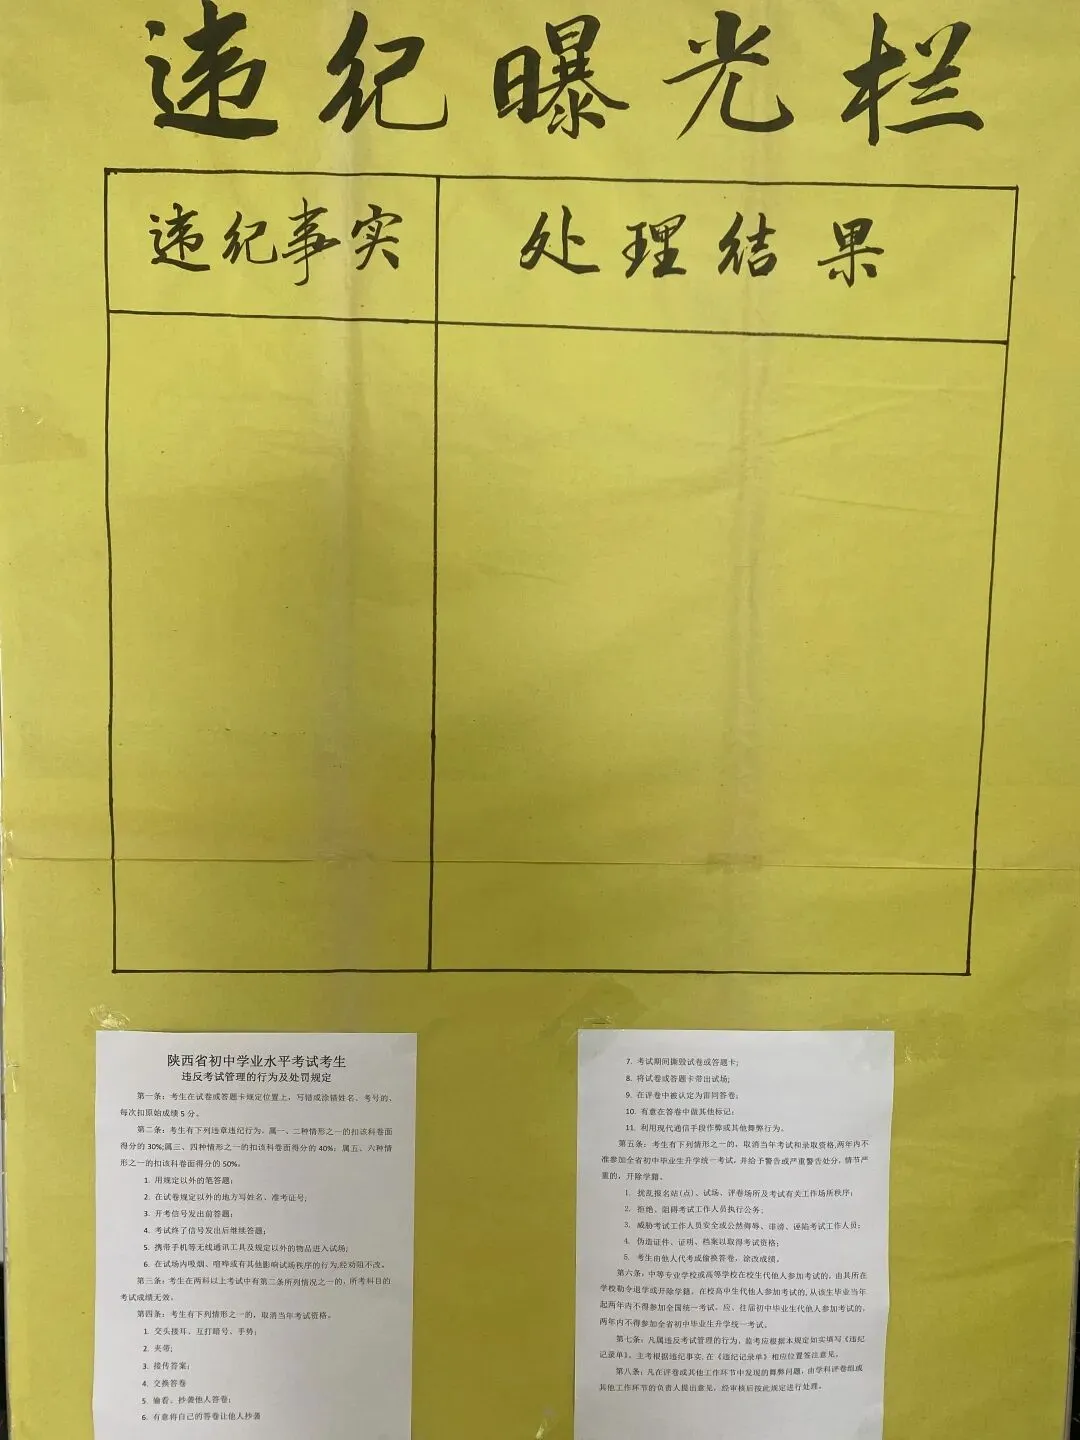 违纪曝光栏
违纪事实
处理结果
陕西省初中学业水平考试考生
违反考试管理的行为及处罚规定
第一条：考生在试卷或答题卡规定位置上，写错或涂错姓名、考号的、
每次扣原始成绩5分。
第二条：考生有下列违章违纪行为，属一、二种情形之一的扣该科卷面
得分的30%;属三、四种情形之一的扣该科卷面得分的40%；属五、六种情
形之一的扣该科卷面得分的50%。
1. 用规定以外的笔答题；
2. 在试卷规定以外的地方写姓名、准考证号;
3. 开考信号发出前答题；
4. 考试终了信号发出后继续答题；
5. 携带手机等无线通讯工具及规定以外的物品进入试场;
6. 在试场内吸烟、喧哗或有其他影响试场秩序的行为,经劝阻不改。
第三条：考生在两科以上考试中有第二条所列情况之一的，所考科目的
考试成绩无效。
第四条：考生有下列情形之一的，取消当年考试资格。
1. 交头接耳、互打暗号、手势；
2. 夹带;
3. 接传答案；
4. 交换答卷
5. 偷看、抄袭他人答卷；
6. 有意将自己的答卷让他人抄袭
7. 考试期间撕毁试卷或答题卡;
8. 将试卷或答题卡带出试场;
9. 在评卷中被认定为雷同答卷;
10. 有意在答卷中做其他标记;
11. 利用现代通信手段作弊或其他舞弊行为。
第五条：考生有下列情形之一的，取消当年考试和录取资格,两年内不
准参加全省初中毕业生升学统一考试，并给予警告或严重警告处分，情节严
重的，开除学籍。
1. 扰乱报名站(点)、试场、评卷场所及考试有关工作场所秩序；
2. 拒绝、阻碍考试工作人员执行公务；
3. 威胁考试工作人员安全或公然侮辱、诽谤、诬陷考试工作人员；
4. 伪造证件、证明、档案以取得考试资格；
5. 考生由他人代考或偷换答卷，涂改成绩。
第六条：中等专业学校或高等学校在校生代他人参加考试的，由其所在
学校勒令退学或开除学籍。在校高中生代他人参加考试的,从该生毕业当年
起两年内不得参加全国统一考试。应、往届初中毕业生代他人参加考试的，
两年内不得参加全省初中毕业生升学统一考试。
第七条：凡属违反考试管理的行为，监考应根据本规定如实填写《违纪
记录单》。主考根据违纪事实,在《违纪记录单》相应位置签注意见。
第八条：凡在评卷或其他工作环节中发现的舞弊问题，由学科评卷组或
其他工作环节的负责人提出意见，经审核后按此规定进行处理。